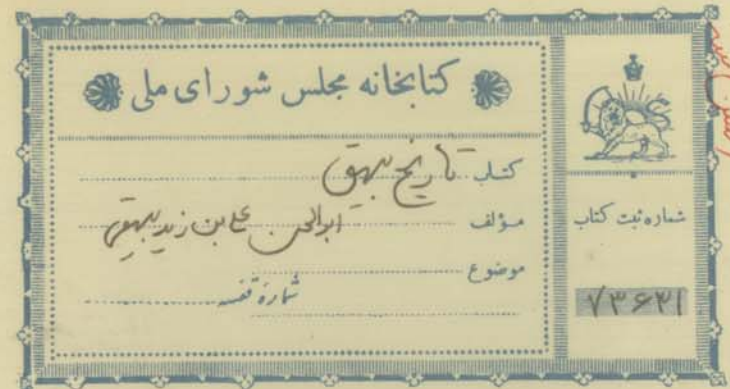 کتابخانه مجلس شورای ملی
کتاب تاریخ بیهق
مؤلف ابوالحسن علی بن زید بیهقی
موضوع
شمارهٔ قفسه
شماره ثبت کتاب
۷۳۶۲۱